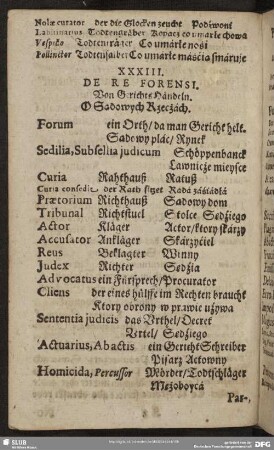 Nolæ curator der die Glocken zeucht Podzwoni
Libitinarius Todtengräber Kopacz co umarle chowa
Vespillo Todtenträger Co umarłe nosi
Pollinctor Todtensalber Co umarłe maścią smaruje
XXXIII.
DE RE FORENSI.
Von Gerichts Händeln.
O Sadowych Rzeczách.
Forum ein Orth/ da man Gericht helt.
Sadowy plác/ Rynek
Sedilia, Subsellia judicum Schöppenbanck
Ławnicze mieysce
Curia Rahthauß Ratuß
Curia consedit der Rath sitzet Radá záśiádłá
Prætorium Richthauß Sadowy dom
Tribunal Richtstuel Stolec Sedźiego
Actor Kläger Actor/ ktory skárzy
Accusator Ankläger Skárzyćiel
Reus Beklagter Winny
Judex Richter Sedźia
Advocatus ein Fürsprech/ Procurator
Cliens der eines hülffe im Rechten braucht
Ktory obrony w prawie używa
Sententia judicis das Urthel/ Decret
Urtel/ Sedźiego
Actuarius, Abactis ein Gericht Schreiber
Pisarz Actowny
Homicida, Percussor Mörder/ Todtschläger
Mężoboycá
Par-,
SLUB